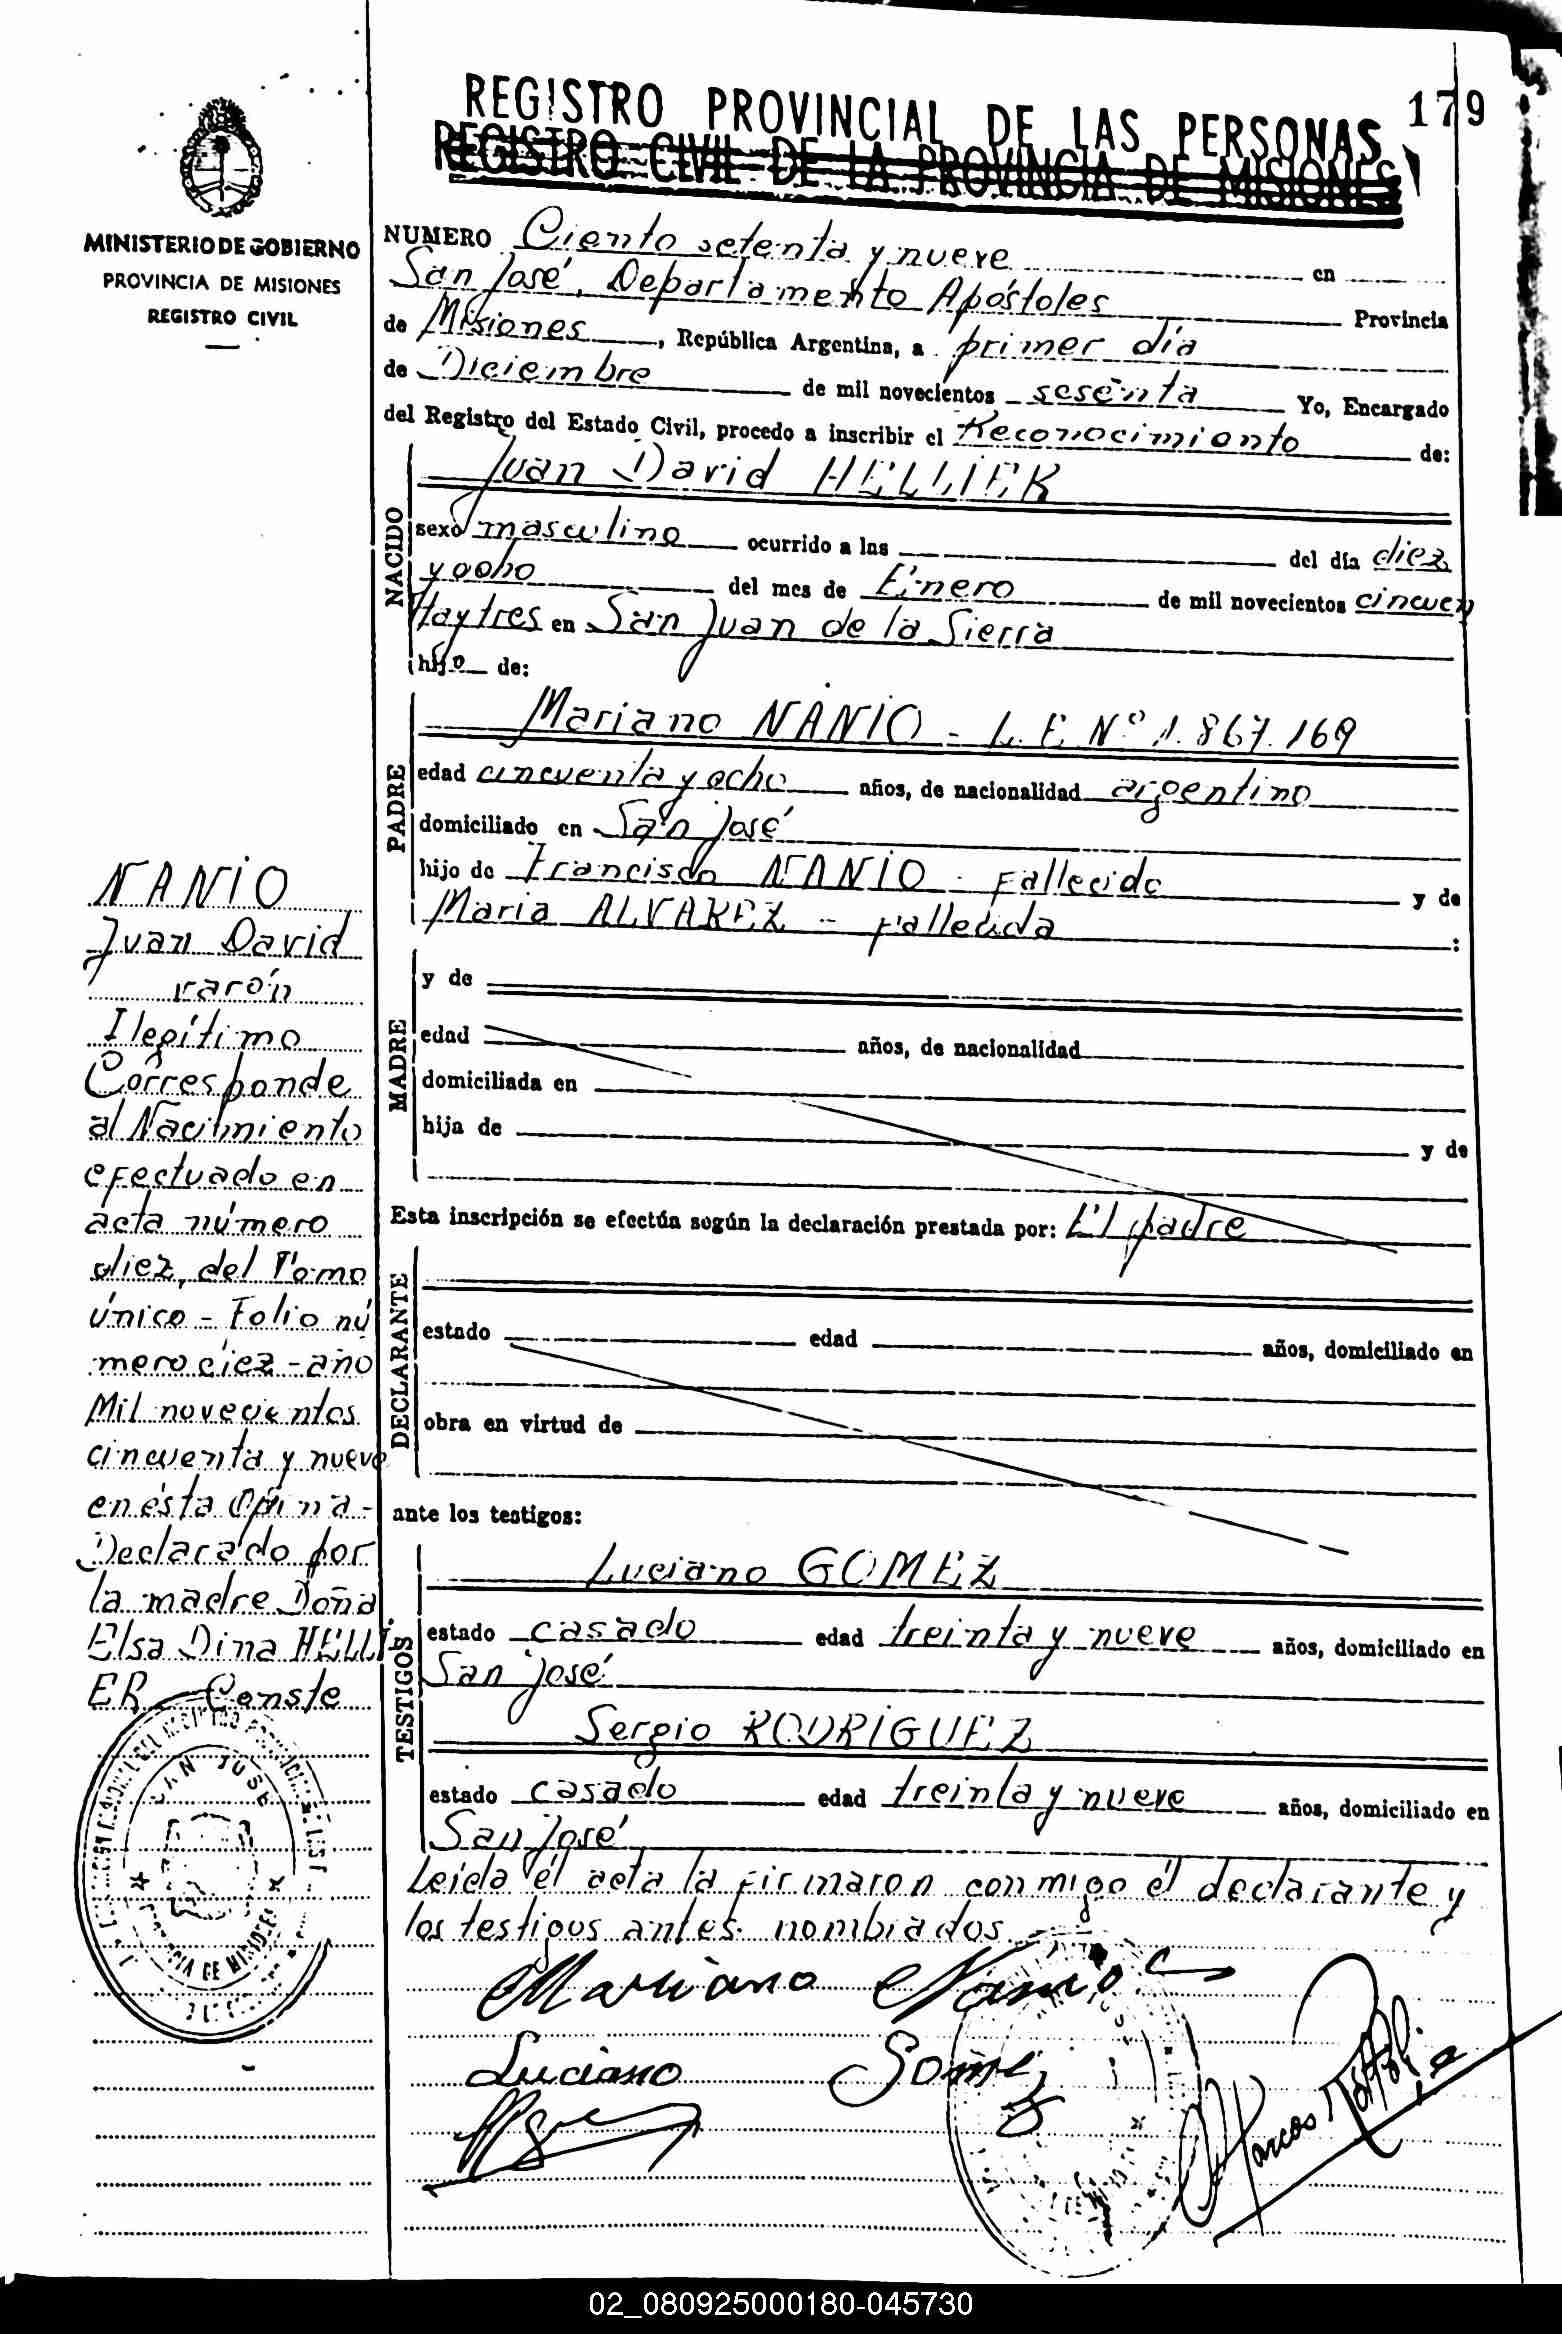 REGISTRO PROVINCIAL DE LAS PERSONAS
179
REGISTRO CIVIL DE LA PROVINCIA DE MISIONES
MINISTERIO DE GOBIERNO
PROVINCIA DE MISIONES
REGISTRO CIVIL
NUMERO Ciento setenta y nueve en
San José, Departamento Apóstoles Provincia
de Misiones, República Argentina, a primer día
de Diciembre de mil novecientos sesenta Yo, Encargado
del Registro del Estado Civil, procedo a inscribir el Reconocimiento de:
NACIDO
Juan David HELLIER
sexo masculino ocurrido a las del día diez
y ocho del mes de Enero de mil novecientos cincuen
ta y tres en San Juan de la Sierra
hijo de:
PADRE
Mariano NANIO - L.E. Nº 1.867.169
edad cincuenta y ocho años, de nacionalidad argentino
domiciliado en San José
hijo de Francisco NANIO - Fallecido y de
Maria ALVAREZ - Fallecida :
MADRE
y de
edad años, de nacionalidad
domiciliada en
hija de y de
Esta inscripción se efectúa según la declaración prestada por: El padre
DECLARANTE
estado edad años, domiciliado en
obra en virtud de
ante los testigos:
TESTIGOS
Luciano GOMEZ
estado casado edad treinta y nueve años, domiciliado en
San José
Sergio RODRIGUEZ
estado casado edad treinta y nueve años, domiciliado en
San José
Leída el acta la firmaron conmigo el declarante y
los testigos antes nombrados
Mariano Nanio
Luciano Gomez
Marcos
NANIO
Juan David
varón
Ilegítimo
Corresponde
al Nacimiento
efectuado en
acta número
diez, del Tomo
único - Folio nú
mero diez - año
Mil novecientos
cincuenta y nueve
en ésta Oficina -
Declarado por
la madre Doña
Elsa Dina HELLI
ER Conste
SAN JOSE
PROVINCIA DE MISIONES
02_080925000180-045730